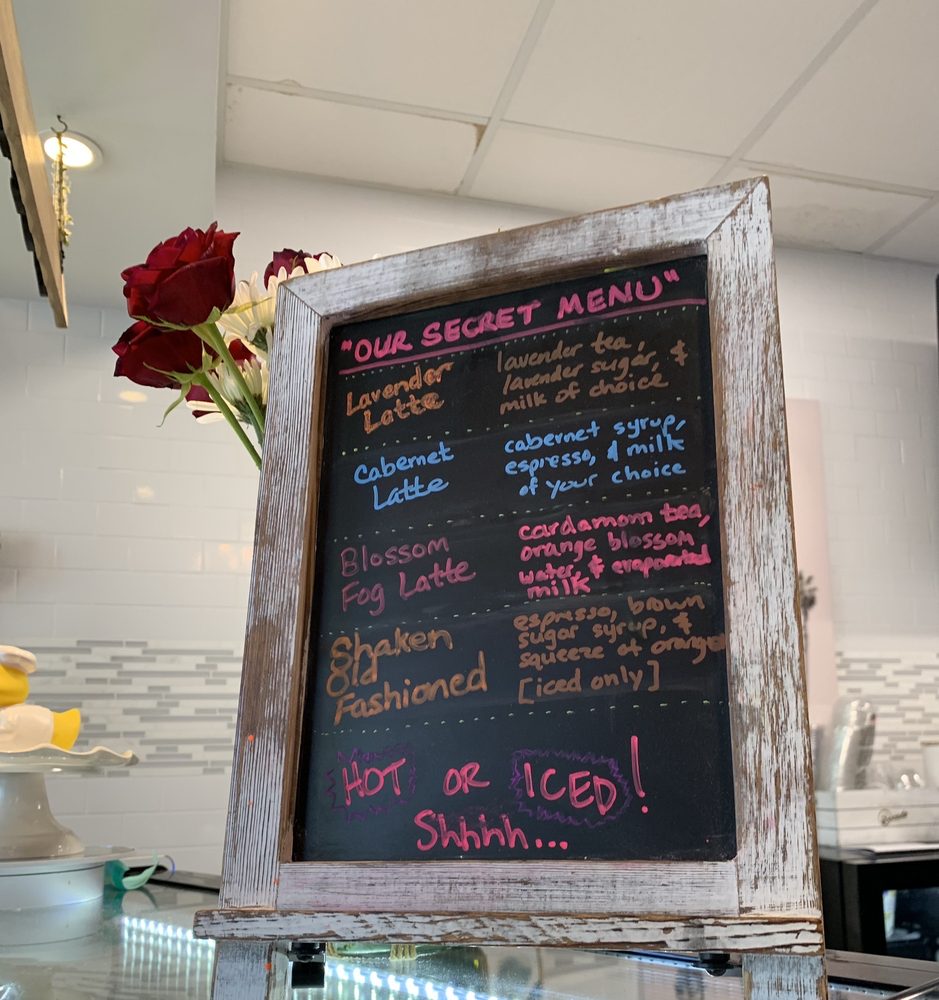 "OUR SECRET MENU"
Lavender
Latte
lavender tea,
lavender sugar, &
milk of choice
Cabernet
Latte
cabernet syrup,
espresso, & milk
of your choice
Blossom
Fog Latte
cardamom tea,
orange blossom
water, & evaporated
milk
Shaken
Old
Fashioned
espresso, brown
sugar syrup, &
squeeze of orange
[iced only]
HOT OR ICED!
Shhhh...